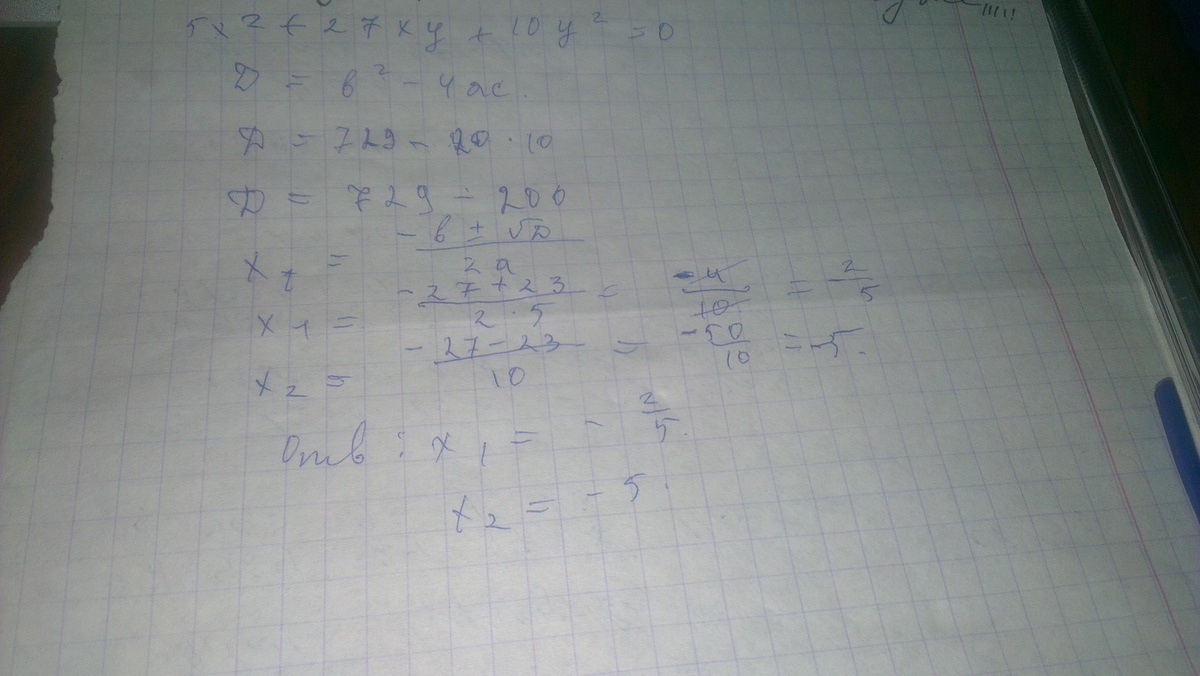 5x² + 27xy + 10y² = 0
D = b² - 4ac.
D = 729 - 20 · 10
D = 729 - 200
x₁ = (-b ± √D) / 2a
x₁ = (-27 + 23) / (2 · 5) = -4/10 = 2/5
x₂ = (-27 - 23) / 10 = -50/10 = -5.
Отв: x₁ = - 2/5.
x₂ = - 5.